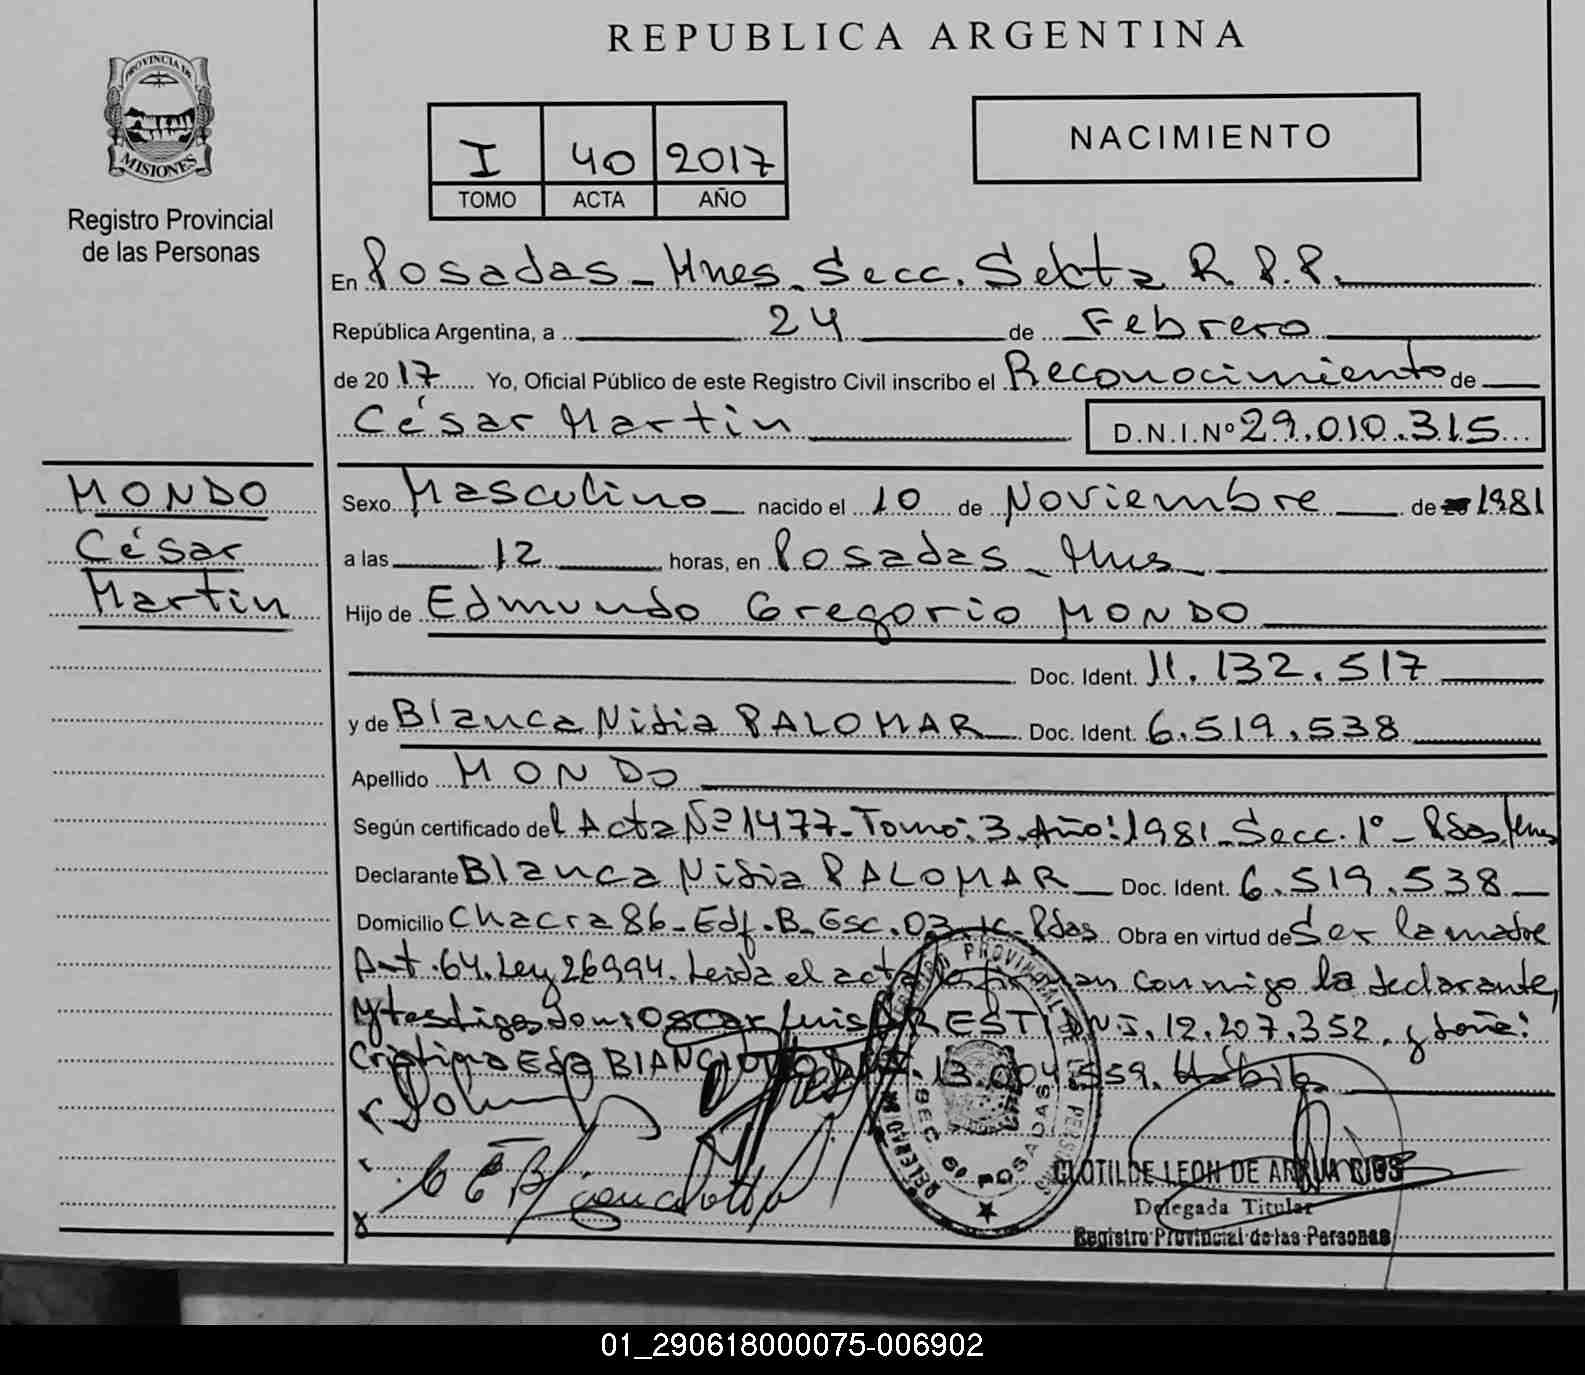 REPUBLICA ARGENTINA
PROVINCIA DE
MISIONES
Registro Provincial
de las Personas
I 40 2017
TOMO ACTA AÑO
NACIMIENTO
En Posadas - Mnes. Secc. Sexta R.P.P.
República Argentina, a 24 de Febrero
de 2017 Yo, Oficial Público de este Registro Civil inscribo el Reconocimiento de
César Martin D.N.I.Nº 29.010.315
MONDO
César
Martin
Sexo Masculino nacido el 10 de Noviembre de 20 1981
a las 12 horas, en Posadas - Mns
Hijo de Edmundo Gregorio MONDO
Doc. Ident. 11.132.517
y de Blanca Nidia PALOMAR Doc. Ident. 6.519.538
Apellido MONDO
Según certificado del Acta Nº 1477 - Tomo: 3. Año: 1981 - Secc. 1º - Pdas
Declarante Blanca Nidia PALOMAR Doc. Ident. 6.519.538
Domicilio Chacra 86 - Edf. B - Esc. 03 - Pdas. Obra en virtud de Ser la madre
Art. 64. Ley 26994. Leida el acta la firman conmigo la declarante,
y testigos Don: Oscar Luis 12.207.352 y doña:
Cristina Eda BIANCIOTTO 13.004.559. Hábiles
REGISTRO PROVINCIAL DE LAS PERSONAS
SEC 6º POSADAS
CLOTILDE LEON DE ARRUA RIOS
Delegada Titular
Registro Provincial de las Personas
01_290618000075-006902